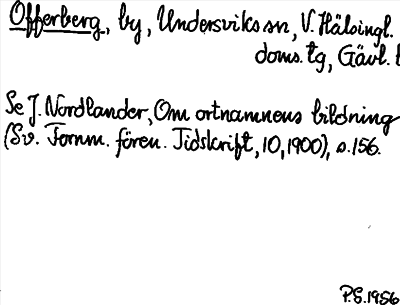 Offerberg, by, Undersviks sn, V. Hälsingl.
doms.tg, Gävl. l
Se J. Nordlander, Om ortnamnens bildning
(Sv. Fornm. fören. Tidskrift, 10, 1900), s. 156.
P.S. 1956